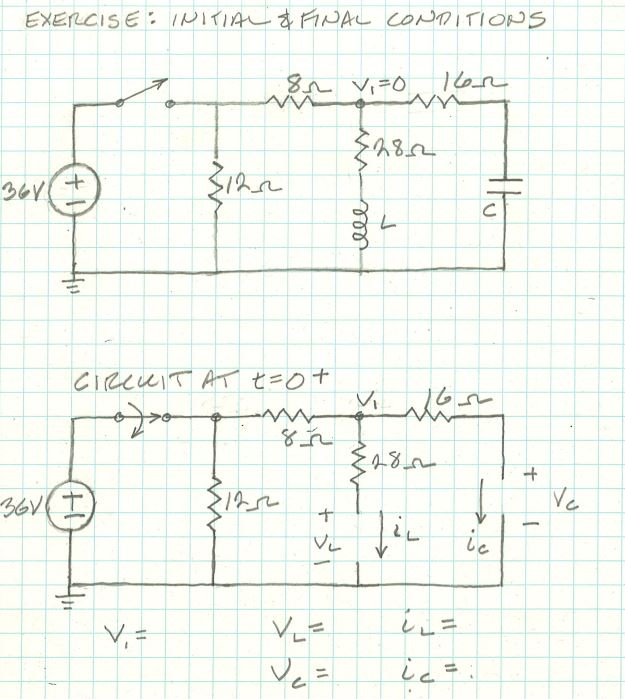 EXERCISE: INITIAL & FINAL CONDITIONS
8Ω V₁=0 16Ω
28Ω
36V + − 12Ω
L C
CIRCUIT AT t=0+
V₁ 16Ω
8Ω
28Ω
36V + − 12Ω + Vc −
+ VL − iL ic
V₁= VL= iL=
Vc= ic=